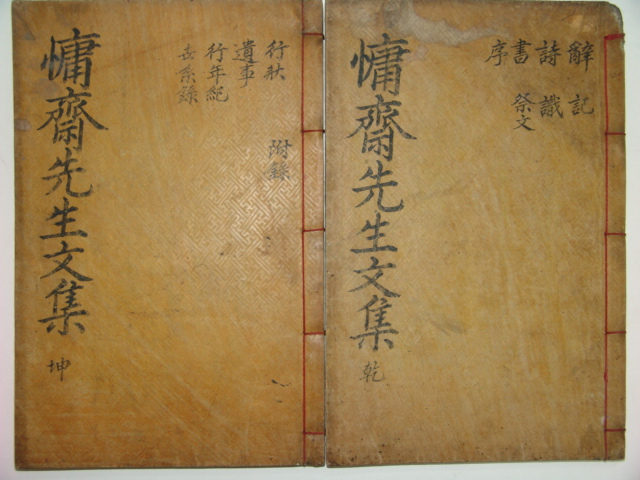 辭 記
詩 識
書 祭文
序
慵齋先生文集
乾
行狀 附錄
遺事
行年紀
世系錄
慵齋先生文集
坤